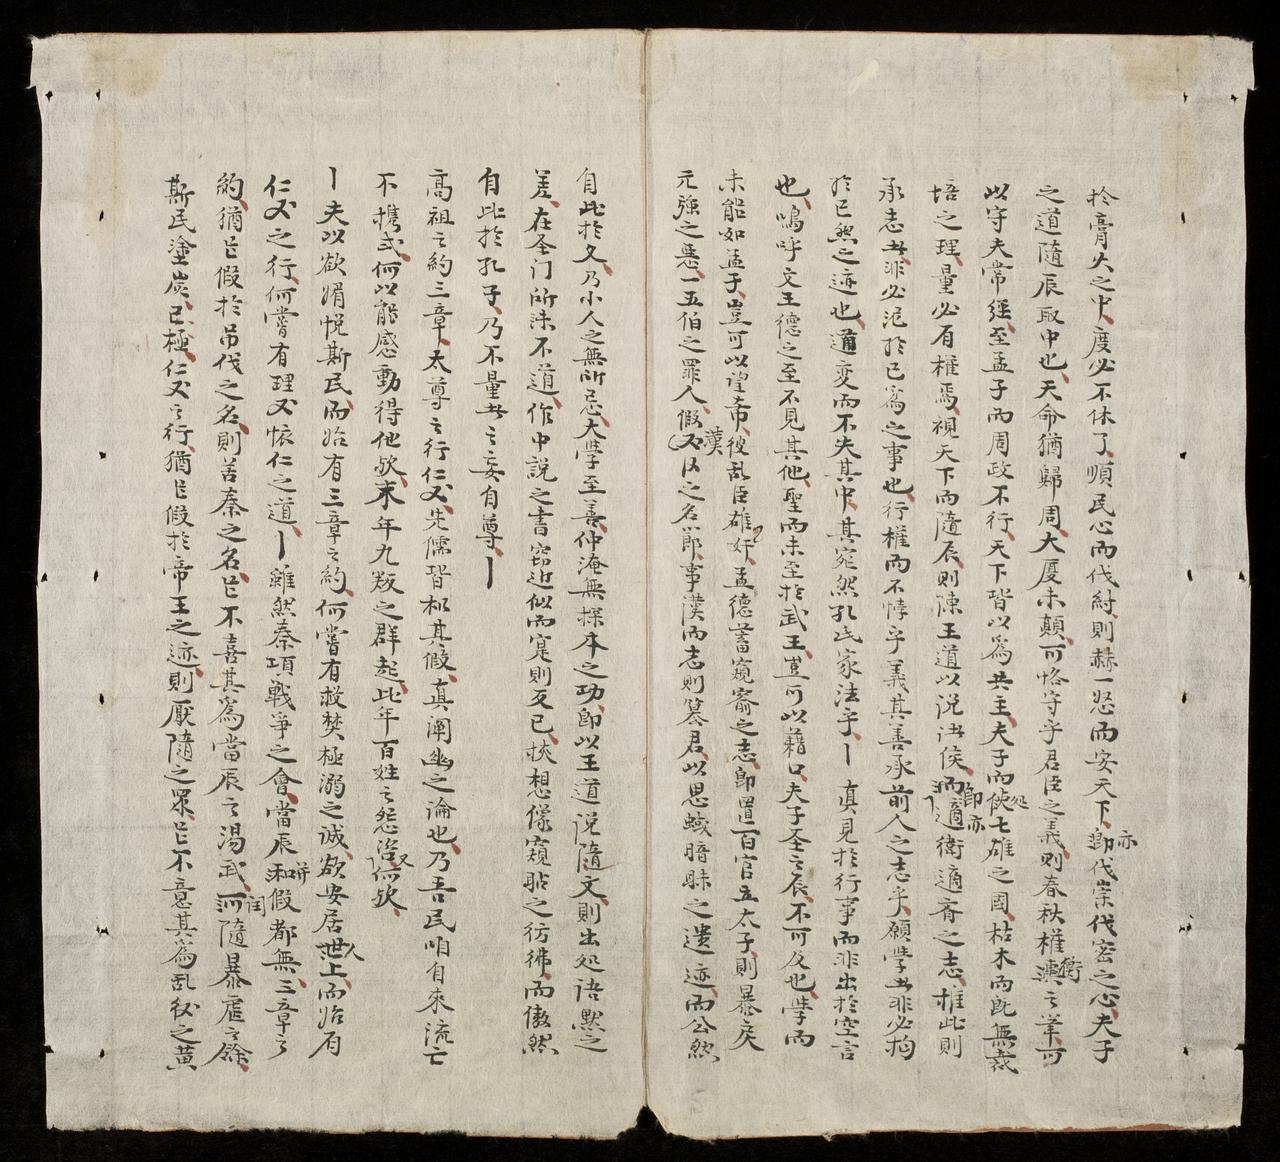 於膏火之中、度必不休了、順民心而伐紂、則赫一怒而安天下、卽亦伐崇伐密之心、夫子
之道隨辰取中也、天命猶歸周、大厦未顛、可恪守乎君臣之義、則春秋權衡之筆、可
以守夫常經、至孟子而周政不行、天下皆以爲共主、夫子而後七雄之國、枯木而旣無栽
培之理、量必有權焉、視天下而隨辰、則陳王道以说諸侯、卽亦適衛適齊之志、推此則
承志者非必泥於已爲之事也、行權而不悖乎義、其善承前人之志乎、願學者非必拘
於已然之迹也、通變而不失其中、其宛然孔氏家法乎、丨真見於行事而非出於空言
也、嗚呼文王德之至、不見其他、聖而未至於武王、豈可以藉口、夫子圣之辰、不可及也、學而
未能如孟子、豈可以望希、彼漢乱臣雄奸、孟德蓄窺窬之志、卽置百官立太子、則暴戾
元強之惡、一五伯之罪人、假又以之名節、事漢而志則篡君、以思蛾暗昧之遺迹、而公然
自比於文、乃小人之無所忌、大學至善、仲淹無探本之功、卽以王道说隨文、則出処语黙之
差、在圣门所未不道、作中説之書、窃近似而寔則反已、挾想像窺貼之彷彿、而傲然
自比於孔子、乃不量者之妄自尊、丨
高祖之約三章、太尊之行仁义、先儒皆枳其假、真阐幽之論也、乃吾民咱自來流亡
不携或、何以能感動得他欤、末年九叛之群起、此年百姓之怨咨、又何欤、
丨夫以欲媚悦斯民、而始有三章之約、何嘗有救焚極溺之诚、欲安居人上、而始有
仁义之行、何嘗有理义怀仁之道、丨雖然秦項戰爭之會、當辰并假都無、三章了
約、猶㠯假於吊伐之名、則苦秦之名㠯不喜其爲當辰之湯武、河閏隨暴虐之餘、
斯民塗炭已極、仁义之行、猶㠯假於帝王之迹、則厭隨之眾㠯不意其爲乱秋之黄